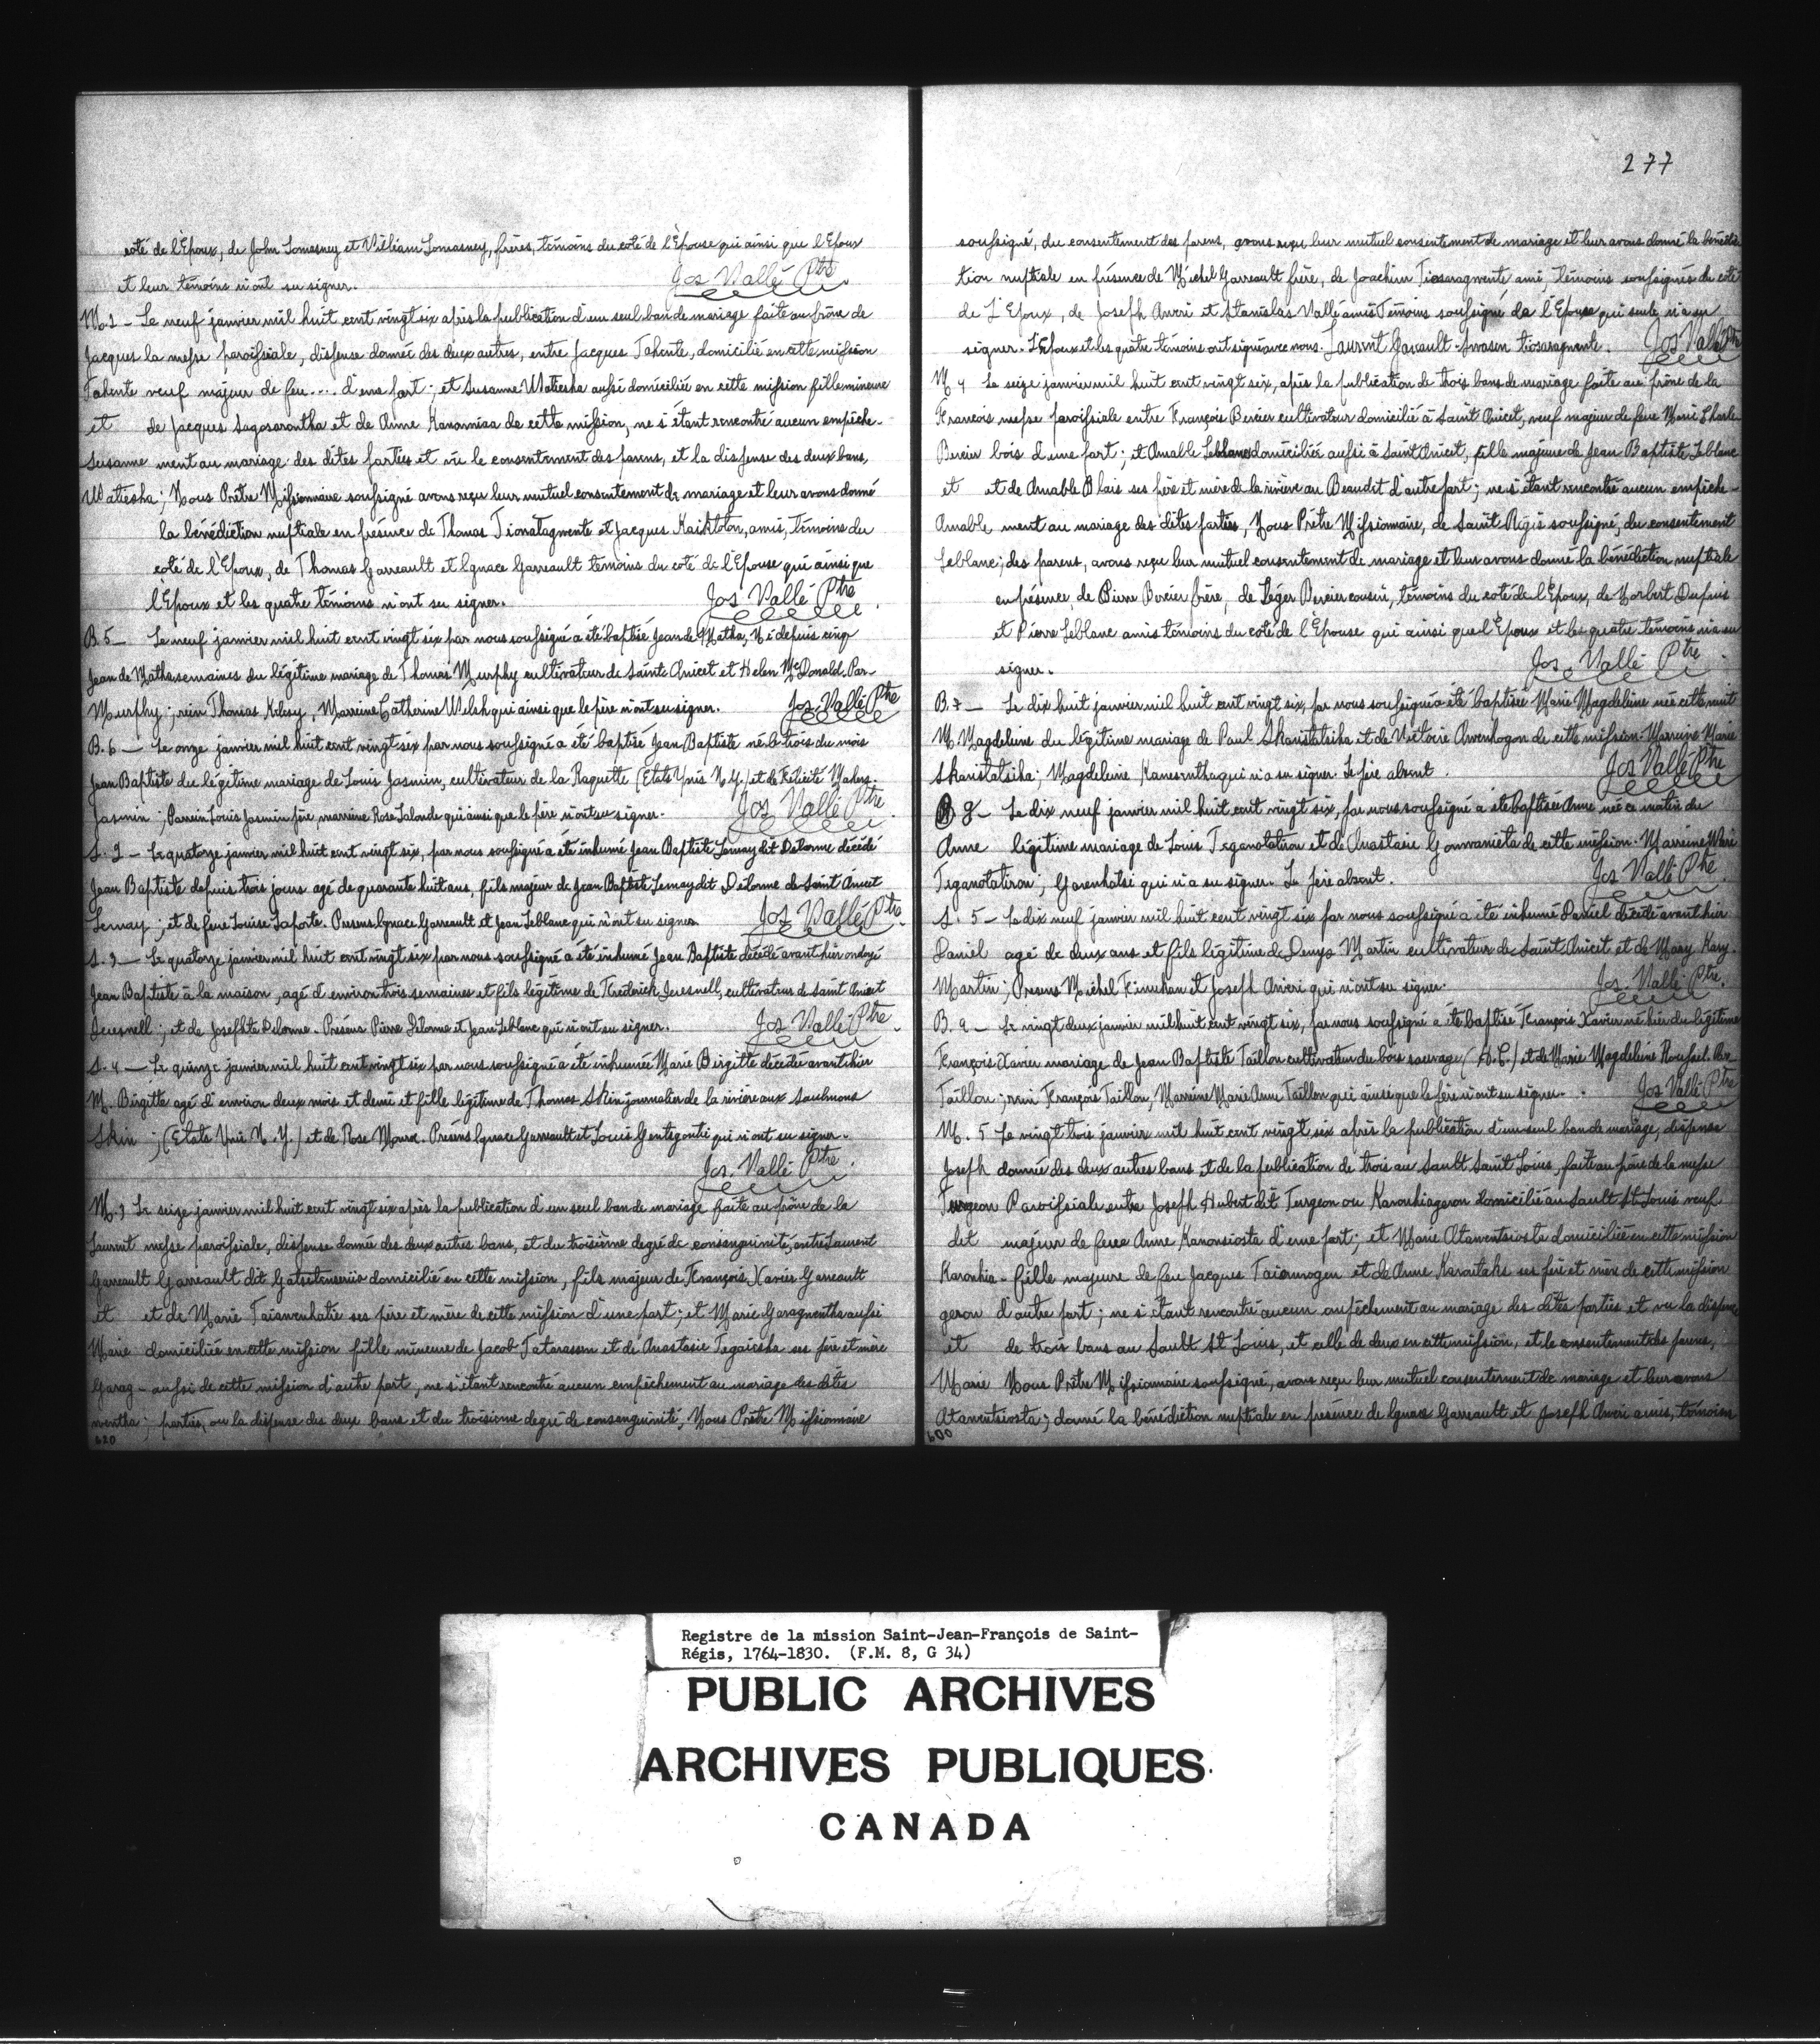 côté de l'Epoux, de John Lomasney et William Lomasney, frères, témoins du côté de l'Epouse qui ainsi que l'Epoux
et leur témoins n'ont su signer. Jos Vallé Ptre
M. 2 - Le neuf janvier mil huit cent vingt six après la publication d'un seul ban de mariage faite au prône de
Jacques la messe paroissiale, dispense donnée des deux autres, entre Jacques Tahente, domicilié en cette mission
Tahente veuf majeur de feu .... d'une part; et Susanne Watiesha aussi domiciliée en cette mission fille mineure
et de Jacques Sagosarontha et de Anne de cette mission, ne s'étant rencontré aucun empêche-
Susanne ment au mariage des dites parties et vû le consentement des parens, et la dispense des deux bans,
Watiesha; Nous Prêtre Missionnaire soussigné avons reçu leur mutuel consentement de mariage et leur avons donné
la bénédiction nuptiale en présence de Thomas Tionatagwente et Jacques Kaikloton, amis, témoins du
coté de l'Epoux, de Thomas Garreault et Ignace Garreault témoins du coté de l'Epouse qui ainsi que
l'Epoux et les quatre témoins n'ont su signer. Jos Vallé Ptre
B. 5 - Le neuf janvier mil huit cent vingt six par nous soussigné a été baptisé Jean de Matha, Né depuis cinq
Jean de Matha semaines du légitime mariage de Thomas Murphy cultivateur de Saint Anicet et Helen McDonald. Par-
Murphy; rein Thomas, Marreine Catherine Welsh qui ainsi que le père n'ont su signer. Jos. Vallé Ptre
B. 6 - Le onze janvier mil huit cent vingt six par nous soussigné a été baptisé Jean Baptiste né le trois du mois
Jean Baptiste du légitime mariage de Louis Jasmin, cultivateur de la Raquette (Etats Unis N.Y.) et de Felicité
Jasmin; Parrein Louis Jasmin père, marreine Rose Lalonde qui ainsi que le père n'ont su signer. Jos Vallé Ptre
S. 2 - Le quatorze janvier mil huit cent vingt six, par nous soussigné a été inhumé Jean Baptiste Lemay dit Delorme décédé
Jean Baptiste depuis trois jours agé de quarante huit ans, fils majeur de Jean Baptiste Lemay dit Delorme de Saint Anicet
Lemay; et de feue Louise Laporte. Presens Ignace Garreault et Jean Leblanc qui n'ont su signer Jos Vallé Ptre
S. 3 - Le quatorze janvier mil huit cent vingt six par nous soussigné a été inhumé Jean Baptiste décédé avant hier ondoyé
Jean Baptiste à la maison, agé d'environ trois semaines et fils légitime de Frederick, cultivateur de Saint Anicet
et de Josephte Delorme. Présens Pierre Delorme et Jean Leblanc qui n'ont su signer. Jos Vallé Ptre
S. 4 - Le quinze janvier mil huit cent vingt six par nous soussigné a été inhumée Marie Birgitte décédée avant hier
M. Birgitte agé d'environ deux mois et demi et fille légitime de Thomas Skin journalier de la rivière aux Saulmons
Skin; (Etats Unis N.Y.) et de Rose Moore. Présens Ignace Garreault et Louis qui n'ont su signer.
Jos. Vallé Ptre
M. 3 Le seize janvier mil huit cent vingt six après la publication d'un seul ban de mariage faite au prône de la
Laurent messe paroissiale, dispense donnée des deux autres bans, et du troisième degré de consanguinité, entre Laurent
Garreault Garreault dit Gatsitenserüio domicilié en cette mission, fils majeur de François Xavier Garreault
et et de Marie Taiawenhatie ses père et mère de cette mission d'une part; et Marie Garagwentha aussi
Marie domiciliée en cette mission fille mineure de Jacob Tatarassen et de Anastasie Tegaiesha ses père et mère
Garag- aussi de cette mission d'autre part, ne s'étant rencontré aucun empêchement au mariage des dites
wentha; parties, ou la dispense des deux bans et du troisieme degré de consanguinité, Nous Prêtre Missionnaire
620
277
soussigné, du consentement des parens, avons reçu leur mutuel consentement de mariage et leur avons donné la bénédic
tion nuptiale en présence de Michel Garreault frère, de Joachim Tiosaragwente ami, témoins soussignés du coté
de l'Epoux, de Joseph Aweri et Stanislas Vallé amis Témoins soussigné de l'Epouse qui seule n'a su
signer. L'Epoux et les quatre témoins ont signé avec nous. Laurent Garault - Swasen tiosaragwente. Jos Vallé Ptre
M 4 Le seize janvier mil huit cent vingt six, après la publication de trois bans de mariage faite au prône de la
François messe paroissiale entre François Bercier cultivateur domicilié à Saint Anicet, veuf majeur de feue Marie Charle
Bercier bois d'une part; et Amable Leblanc domiciliée aussi à Saint Anicet, fille majeure de Jean Baptiste Leblanc
et et de Amable Blais ses père et mère de la rivière au Beaudet d'autre part; ne s'étant rencontré aucun empêche-
Amable ment au mariage des dites parties, Nous Prêtre Missionnaire, de Saint Régis soussigné, du consentement
Leblanc; des parens, avons reçu leur mutuel consentement de mariage et leur avons donné la bénédiction nuptiale
en présence, de Pierre Bercier frère, de Léger Bercier cousin, témoins du coté de l'Epoux, de Norbert Dupuis
et Pierre Leblanc amis témoins du coté de l'Epouse qui ainsi que l'Epoux et les quatre témoins n'a su
signer. Jos. Vallé Ptre
B. 7 - Le dix huit janvier mil huit cent vingt six, par nous soussigné a été baptisée Marie Magdeleine née cette nuit
M Magdeleine du légitime mariage de Paul Skanistatsika et de Victoire Awenhogon de cette mission. Marreine Marie
Skanistatsika; Magdeleine Kanesenthaqui n'a su signer. Le père absent. Jos Vallé Ptre
B 8 - Le dix neuf janvier mil huit cent vingt six, par nous soussigné a été baptisée Anne née ce matin du
Anne légitime mariage de Louis Teganotatiron et de Anastasie Gonwanieta de cette mission. Marreine Marie
Teganotatiron; Garenhatsi qui n'a su signer. Le père absent. Jos Vallé Ptre
S. 5 - Le dix neuf janvier mil huit cent vingt six par nous soussigné a été inhumé Daniel décédé avant hier
Daniel agé de deux ans et fils légitime de Denys Martin cultivateur de Saint Anicet et de Mary Kary.
Martin; Presens Michel Kinuhan et Joseph Aweri qui n'ont su signer. Jos. Vallé Ptre.
B. 9 - Le vingt deux janvier mil huit cent vingt six, par nous soussigné a été baptisé François Xavier né hier du légitime
François Xavier mariage de Jean Baptiste Taillon cultivateur du bois sauvage (H.C.) et de Marie Magdeleine Roussel. Par-
Taillon; rein François Taillon, Marreine Marie Anne Taillon qui ainsi que le père n'ont su signer. Jos Vallé Ptre
M. 5 Le vingt trois janvier mil huit cent vingt six après la publication d'un seul ban de mariage, dispense
Joseph donnée des deux autres bans et de la publication de trois au Sault Saint Louis, faite au prône de la messe
Turgeon Paroissiale entre Joseph Hubert dit Turgeon ou Karonhiageron domicilié au Sault St Louis veuf
dit majeur de feue Anne Kanonsiosta d'une part; et Marie Atawentsiosta domiciliée en cette mission
Karonhia- fille majeure de feu Jacques Taiorwogen et de Anne Karoutaks ses père et mère de cette mission
geron d'autre part; ne s'étant rencontré aucun empêchement au mariage des dites parties et vu la dispense
et de trois bans au Sault St Louis, et celle de deux en cette mission, et le consentement des parens,
Marie Nous Prêtre Missionnaire soussigné, avons reçu leur mutuel consentement de mariage et leur avons
Atawentsiosta; donné la bénédiction nuptiale en présence de Ignace Garreault et Joseph Aweri amis, témoins
600
Registre de la mission Saint-Jean-François de Saint-
Régis, 1764-1830. (F.M. 8, G 34)
PUBLIC ARCHIVES
ARCHIVES PUBLIQUES
CANADA